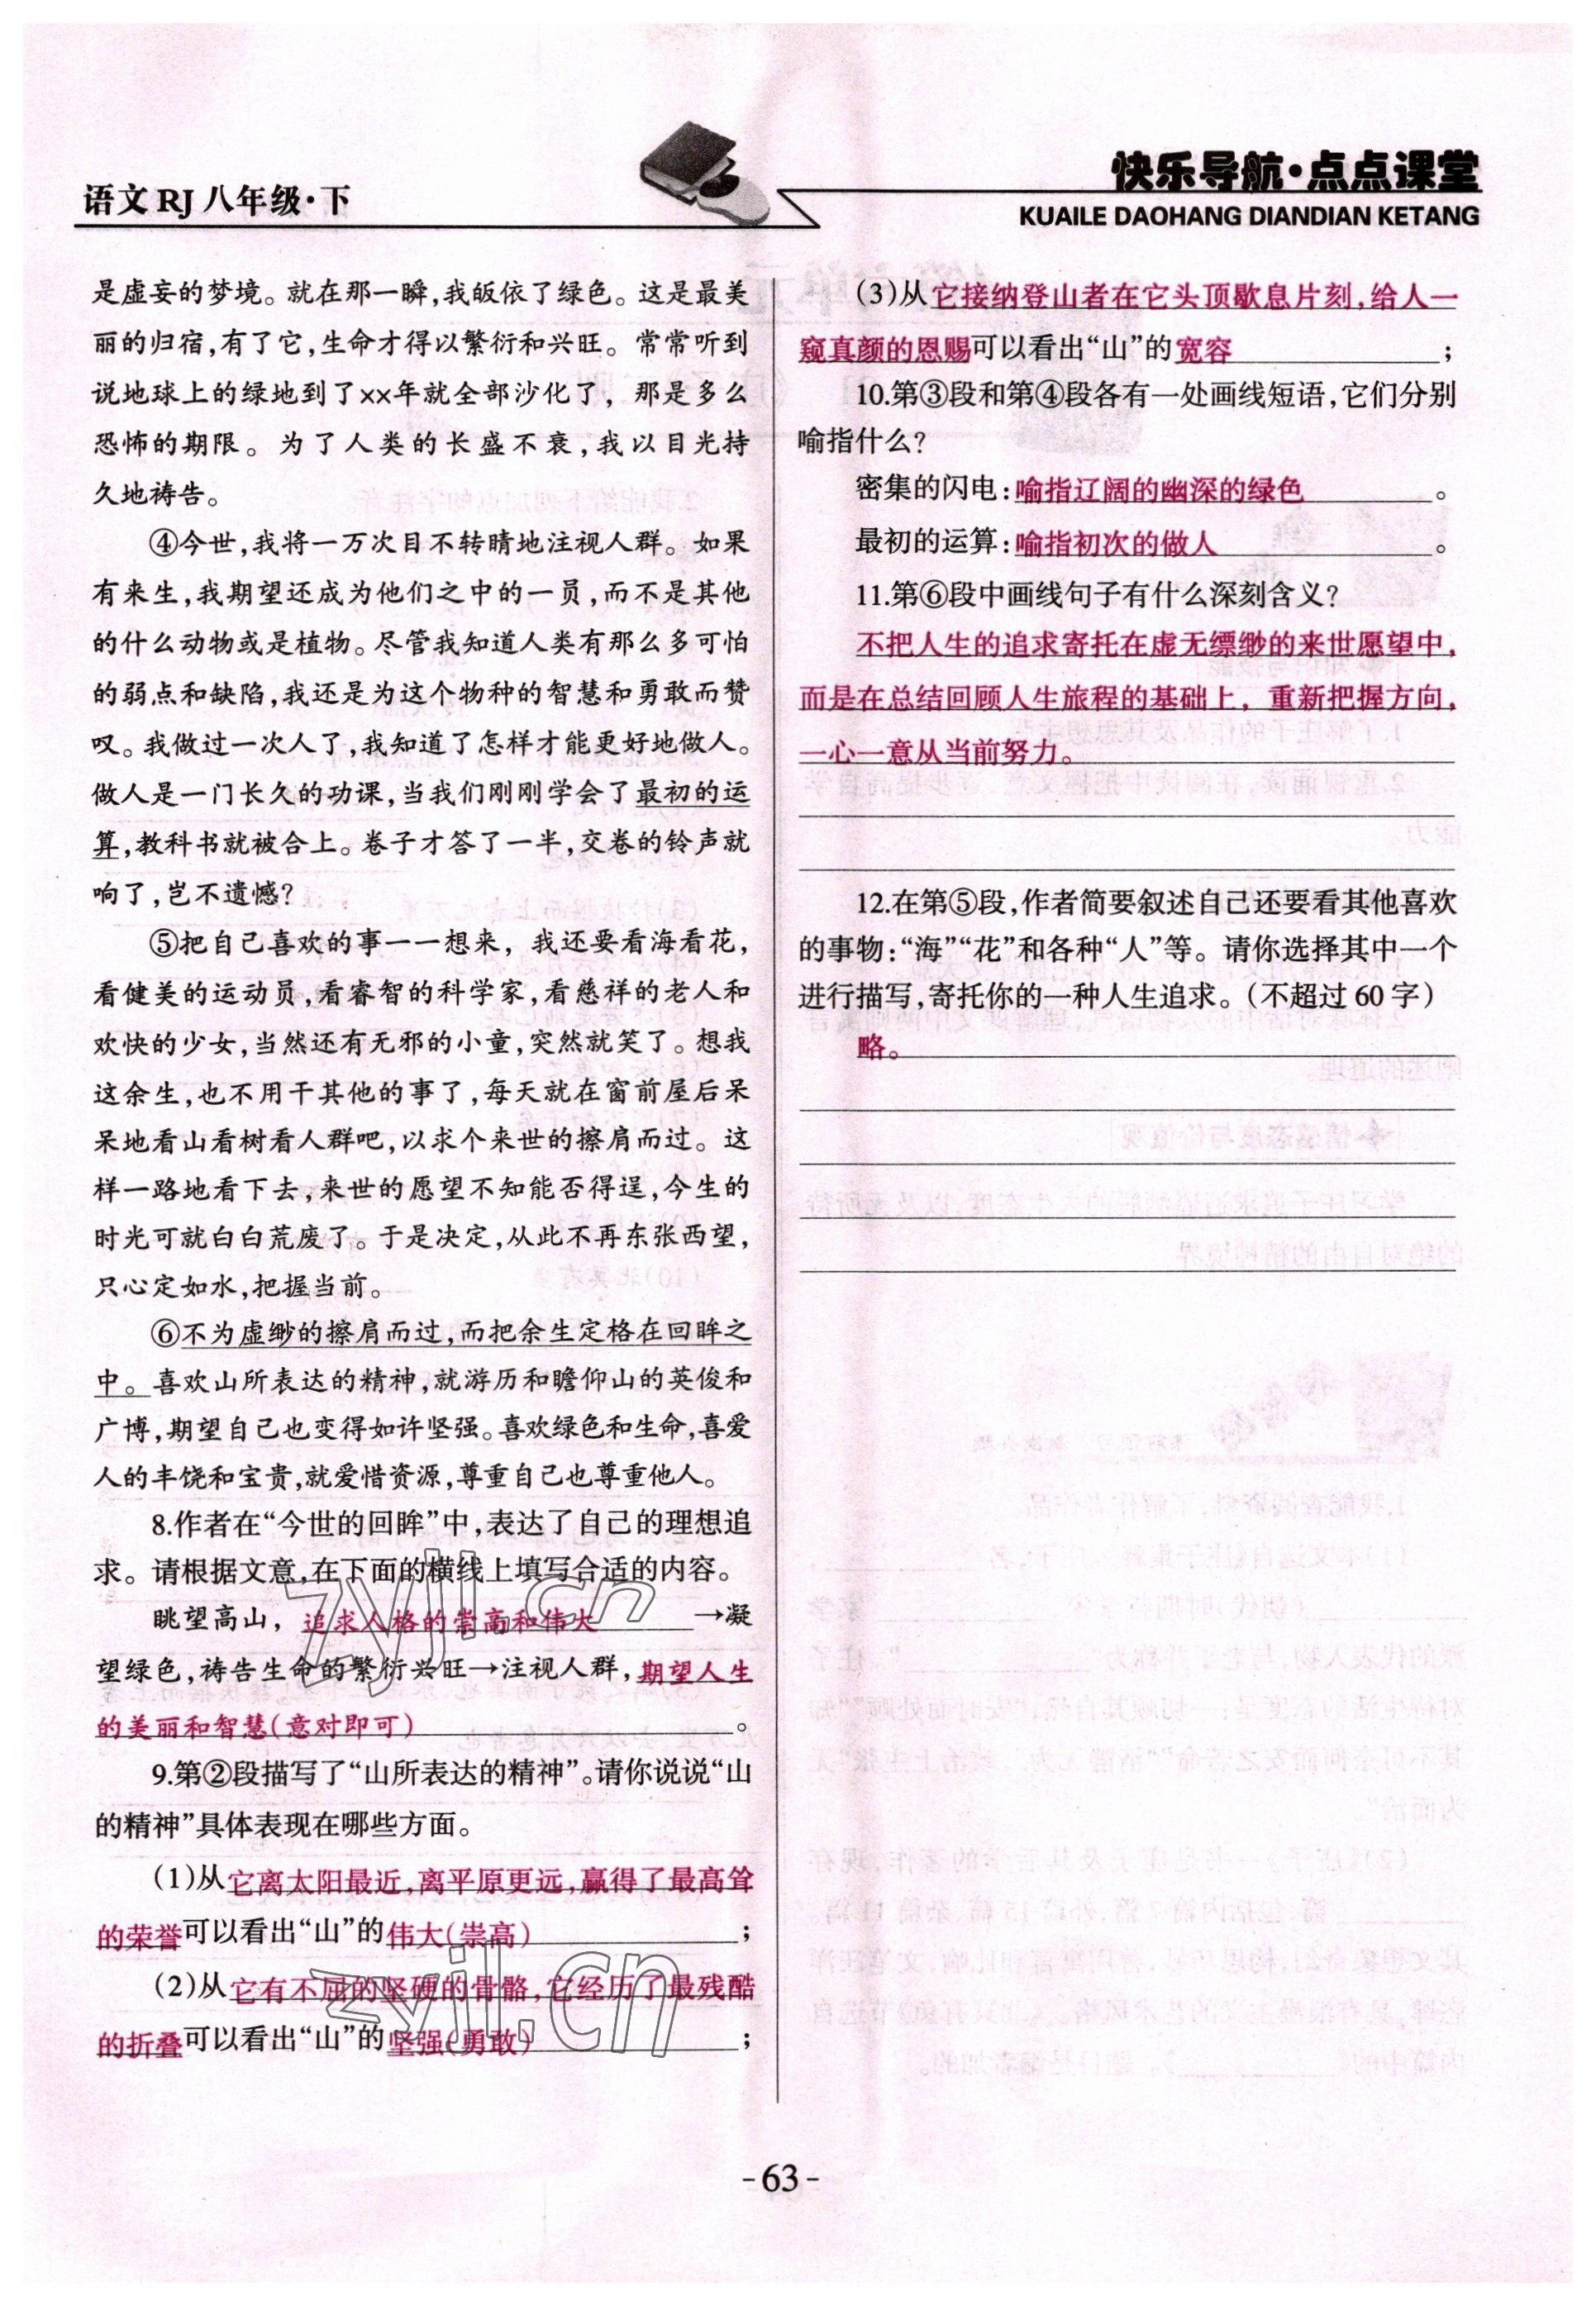 语文RJ 八年级·下
快乐导航·点点课堂
KUAILE DAOHANG DIANDIAN KETANG
是虚妄的梦境。就在那一瞬,我皈依了绿色。这是最美
丽的归宿,有了它,生命才得以繁衍和兴旺。常常听到
说地球上的绿地到了××年就全部沙化了,那是多么
恐怖的期限。为了人类的长盛不衰,我以目光持
久地祷告。
④今世,我将一万次目不转睛地注视人群。如果
有来生,我期望还成为他们之中的一员,而不是其他
的什么动物或是植物。尽管我知道人类有那么多可怕
的弱点和缺陷,我还是为这个物种的智慧和勇敢而赞
叹。我做过一次人了,我知道了怎样才能更好地做人。
做人是一门长久的功课,当我们刚刚学会了最初的运
算,教科书就被合上。卷子才答了一半,交卷的铃声就
响了,岂不遗憾?
⑤把自己喜欢的事一一想来,我还要看海看花,
看健美的运动员,看睿智的科学家,看慈祥的老人和
欢快的少女,当然还有无邪的小童,突然就笑了。想我
这余生,也不用干其他的事了,每天就在窗前屋后呆
呆地看山看树看人群吧,以求个来世的擦肩而过。这
样一路地看下去,来世的愿望不知能否得逞,今生的
时光可就白白荒废了。于是决定,从此不再东张西望,
只心定如水,把握当前。
⑥不为虚缈的擦肩而过,而把余生定格在回眸之
中。喜欢山所表达的精神,就游历和瞻仰山的英俊和
广博,期望自己也变得如许坚强。喜欢绿色和生命,喜爱
人的丰饶和宝贵,就爱惜资源,尊重自己也尊重他人。
8.作者在“今世的回眸”中,表达了自己的理想追
求。请根据文意,在下面的横线上填写合适的内容。
眺望高山,追求人格的崇高和伟大→凝
望绿色,祷告生命的繁衍兴旺→注视人群,期望人生
的美丽和智慧(意对即可)。
9.第②段描写了“山所表达的精神”。请你说说“山
的精神”具体表现在哪些方面。
(1)从它离太阳最近,离平原更远,赢得了最高耸
的荣誉可以看出“山”的伟大(崇高);
(2)从它有不屈的坚硬的骨骼,它经历了最残酷
的折叠可以看出“山”的坚强(勇敢);
(3)从它接纳登山者在它头顶歇息片刻,给人一
窥真颜的恩赐可以看出“山”的宽容;
10.第③段和第④段各有一处画线短语,它们分别
喻指什么?
密集的闪电:喻指辽阔的幽深的绿色。
最初的运算:喻指初次的做人。
11.第⑥段中画线句子有什么深刻含义?
不把人生的追求寄托在虚无缥缈的来世愿望中,
而是在总结回顾人生旅程的基础上,重新把握方向,
一心一意从当前努力。
12.在第⑤段,作者简要叙述自己还要看其他喜欢
的事物:“海”“花”和各种“人”等。请你选择其中一个
进行描写,寄托你的一种人生追求。(不超过60字)
略。
zyjl.cn
zyjl.cn
-63-